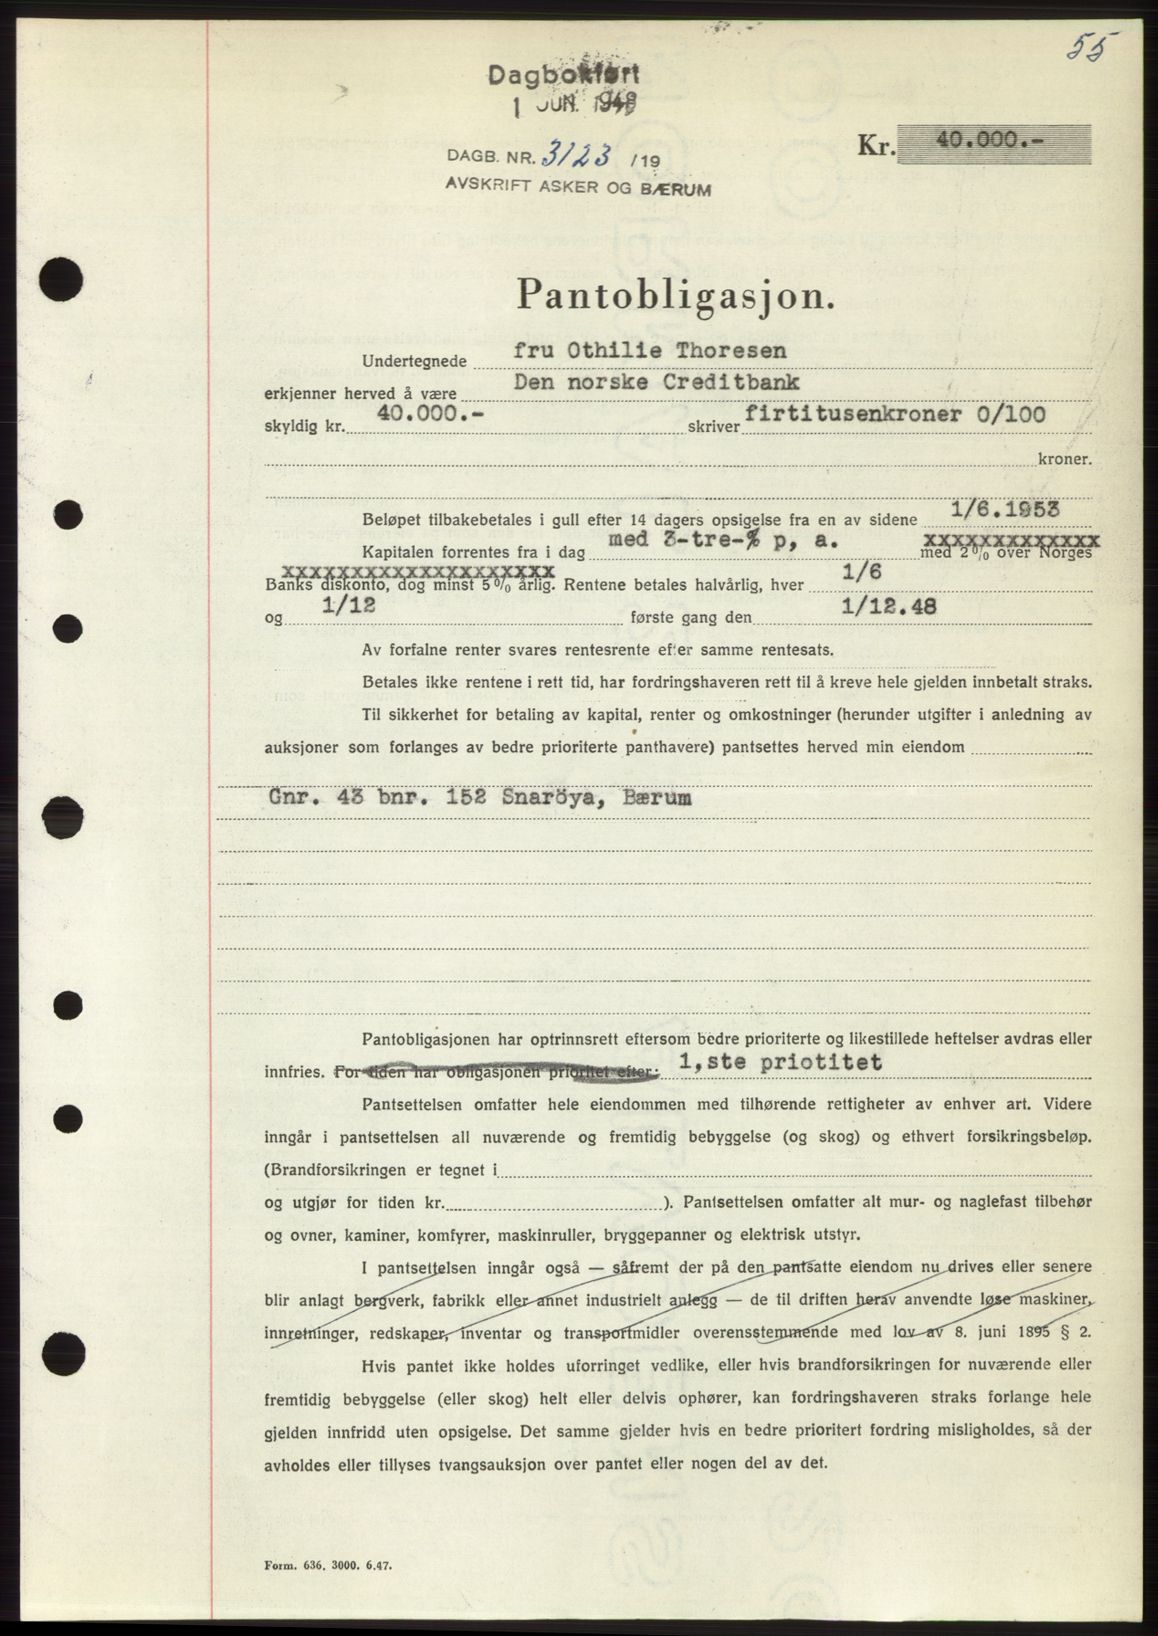 55
Dagbokført
1 JUN. 1948
DAGB. NR. 3123 /19
AVSKRIFT ASKER OG BÆRUM
Kr. 40.000.-
Pantobligasjon.
Undertegnede fru Othilie Thoresen
erkjenner herved å være Den norske Creditbank
skyldig kr. 40.000.- skriver firtitusenkroner 0/100
kroner.
Beløpet tilbakebetales i gull efter 14 dagers opsigelse fra en av sidene 1/6.1953
Kapitalen forrentes fra i dag med 3-tre-% p, a. med 2% over Norges
Banks diskonto, dog minst 5% årlig. Rentene betales halvårlig, hver 1/6
og 1/12 første gang den 1/12.48
Av forfalne renter svares rentesrente efter samme rentesats.
Betales ikke rentene i rett tid, har fordringshaveren rett til å kreve hele gjelden innbetalt straks.
Til sikkerhet for betaling av kapital, renter og omkostninger (herunder utgifter i anledning av
auksjoner som forlanges av bedre prioriterte panthavere) pantsettes herved min eiendom
Gnr. 43 bnr. 152 Snaröya, Bærum
Pantobligasjonen har optrinnsrett eftersom bedre prioriterte og likestillede heftelser avdras eller
innfries. For tiden har obligasjonen prioritet efter: 1,ste priotitet
Pantsettelsen omfatter hele eiendommen med tilhørende rettigheter av enhver art. Videre
inngår i pantsettelsen all nuværende og fremtidig bebyggelse (og skog) og ethvert forsikringsbeløp.
(Brandforsikringen er tegnet i
og utgjør for tiden kr. ). Pantsettelsen omfatter alt mur- og naglefast tilbehør
og ovner, kaminer, komfyrer, maskinruller, bryggepanner og elektrisk utstyr.
I pantsettelsen inngår også — såfremt der på den pantsatte eiendom nu drives eller senere
blir anlagt bergverk, fabrikk eller annet industrielt anlegg — de til driften herav anvendte løse maskiner,
innretninger, redskaper, inventar og transportmidler overensstemmende med lov av 8. juni 1895 § 2.
Hvis pantet ikke holdes uforringet vedlike, eller hvis brandforsikringen for nuværende eller
fremtidig bebyggelse (eller skog) helt eller delvis ophører, kan fordringshaveren straks forlange hele
gjelden innfridd uten opsigelse. Det samme gjelder hvis en bedre prioritert fordring misligholdes, så der
avholdes eller tillyses tvangsauksjon over pantet eller nogen del av det.
Form. 636. 3000. 6.47.